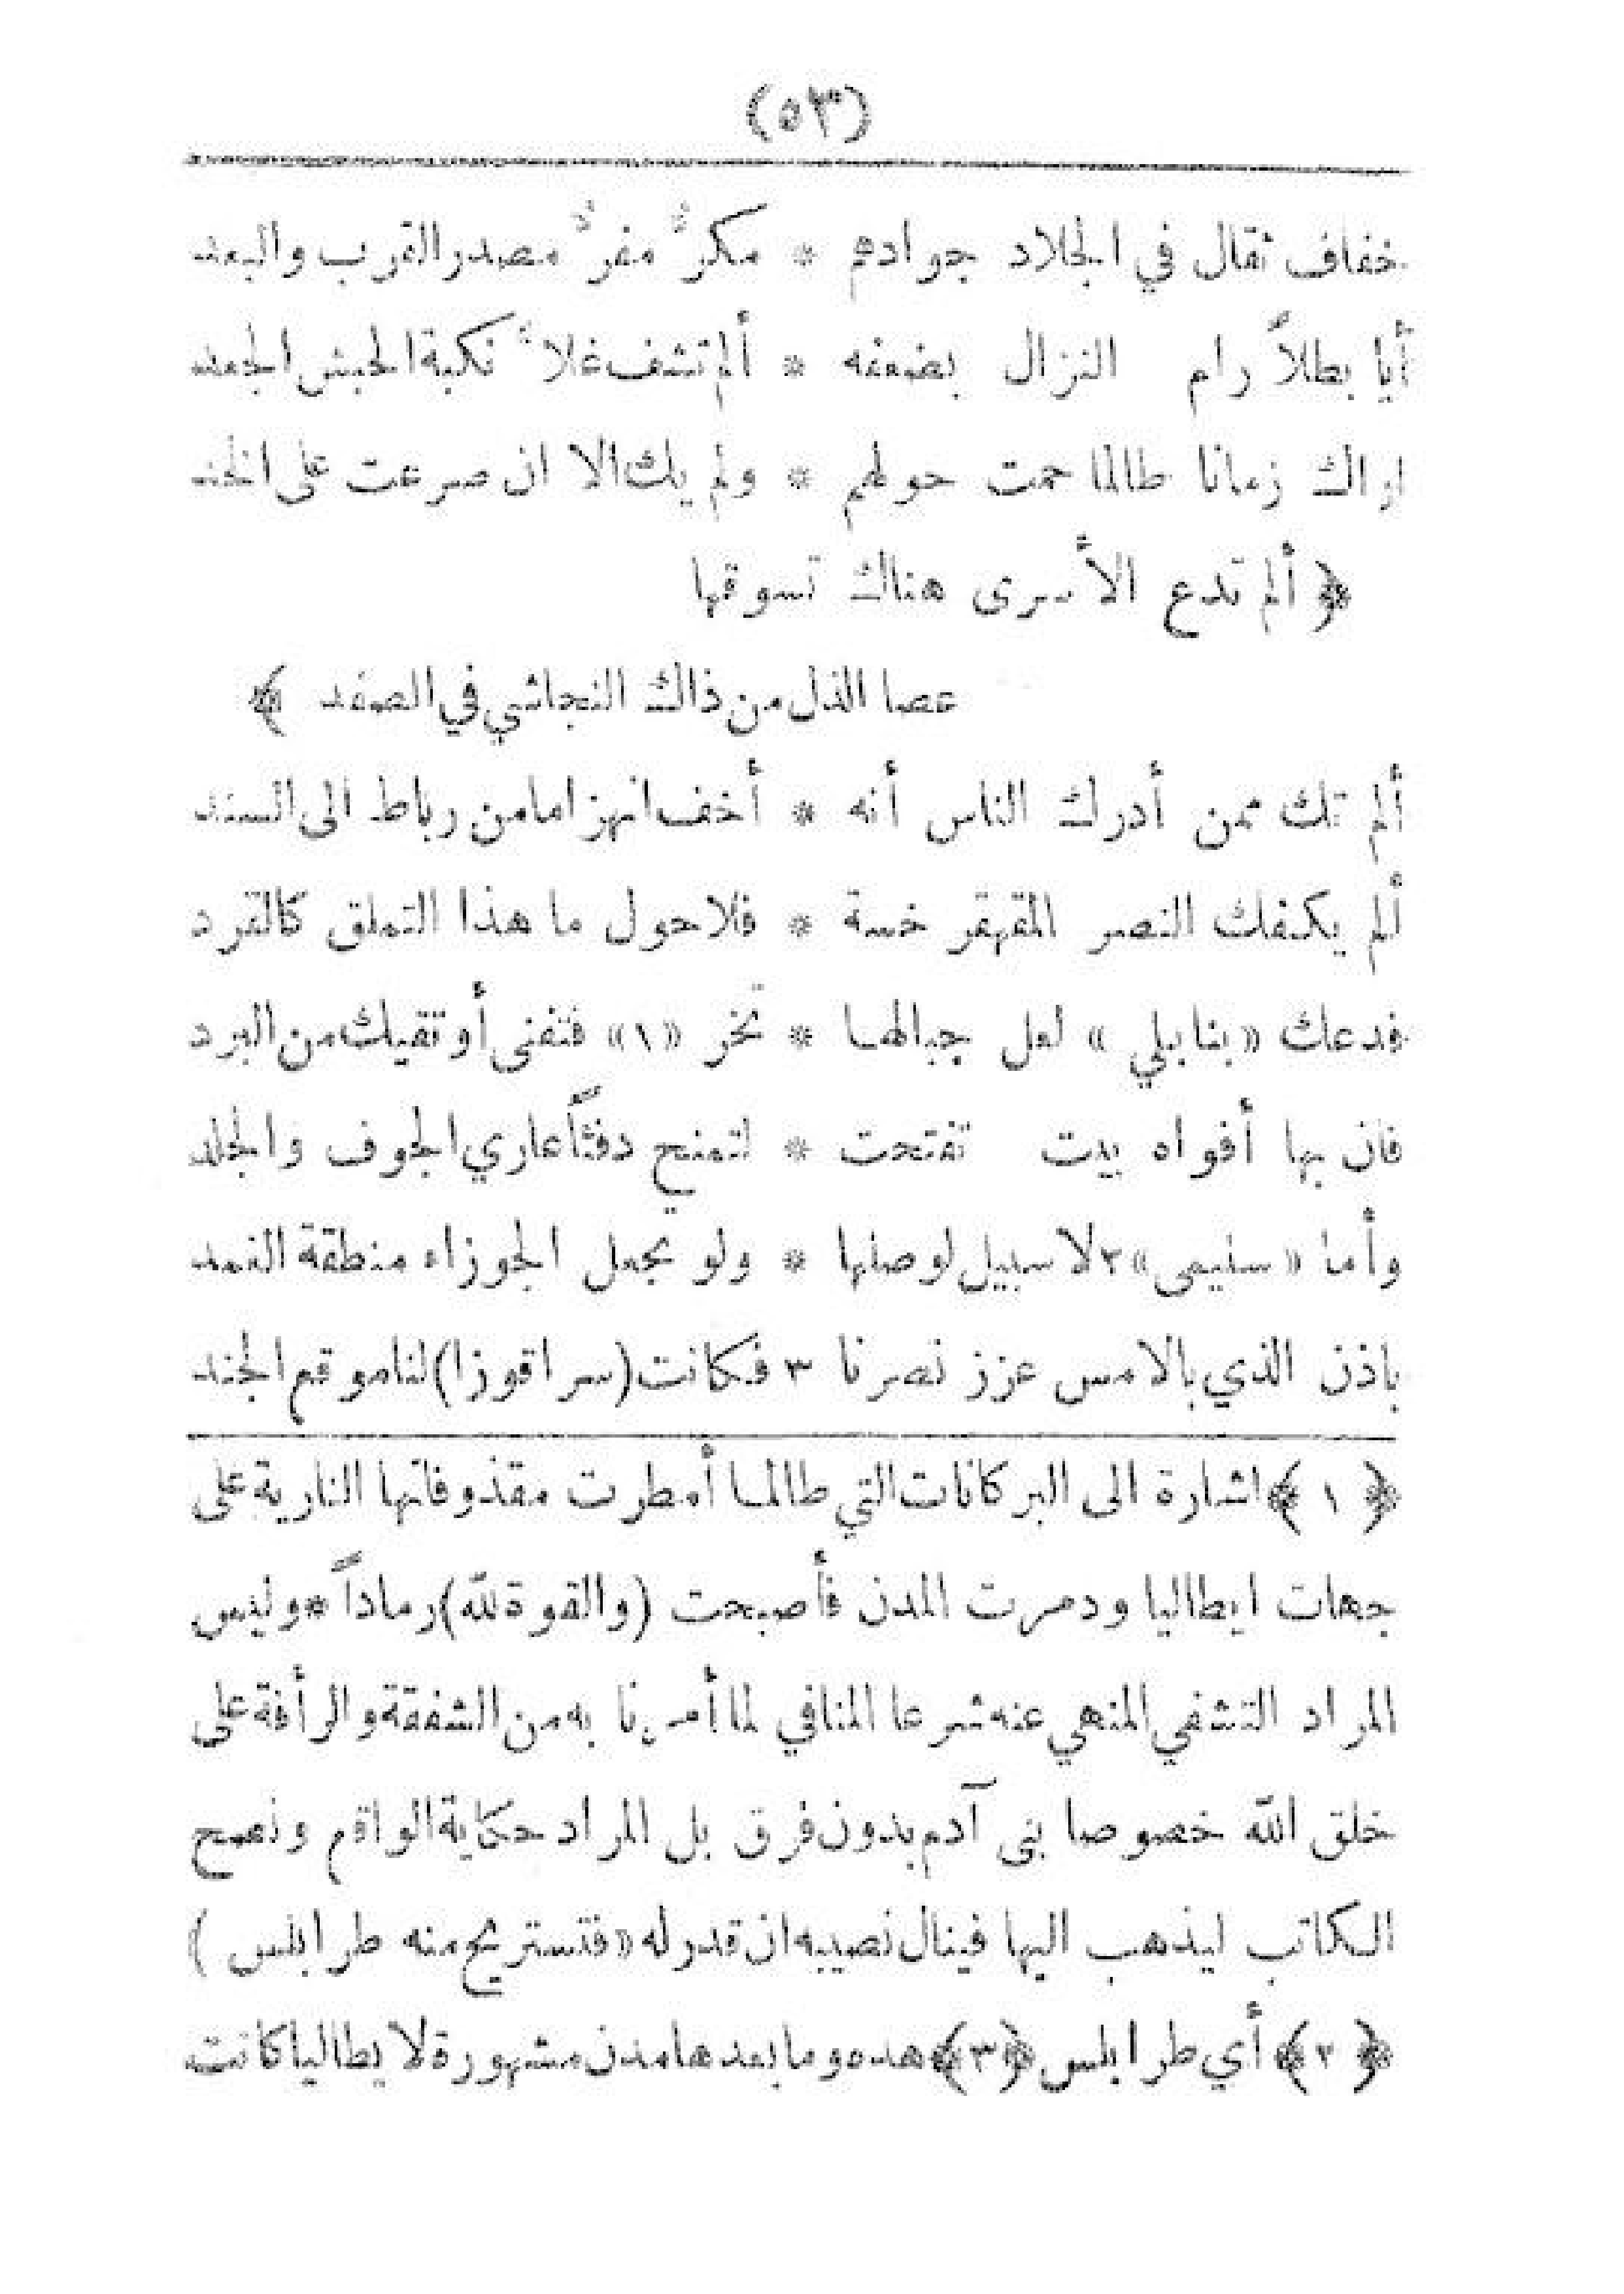 (٥٣)
خفاف ثقال في الجلاد جوادهم * مكرٌّ مفرٌّ مصدر القرب والبعد
أيا بطلاً رام النزال بضعفه * ألم تشف غلاً نكبة الحبش الجعد
اراك زمانا طالما حمت حولهم * ولم يك الا ان صرعت على الخد
﴿ ألم تدع الأسرى هناك تسوقها
عصا الذل من ذاك النجاشي في الصفد ﴾
ألم تك ممن أدرك الناس أنه * أخف انهزاما من رباط الى السند
ألم يكفك النصر المقهقر خسة * فلا حول ما هذا التملق كالقرد
فدعك «بنابلي» لعل جبالها * تخر «١» فتفنى أو تقيك من البرد
فان بها أفواه بيت تفتحت * لتمنح دفئاً عاري الجوف والجلد
وأما «سليمى»٢ لا سبيل لوصلها * ولو تجعل الجوزاء منطقة الغمد
باذن الذي بالامس عزز نصرنا ٣ فكانت (سراقوزا) لنا موقع الجند
﴿ ١ ﴾ اشارة الى البركانات التي طالما أمطرت مقذوفاتها النارية على
جهات ايطاليا ودمرت المدن فأصبحت (والقوة لله) رماداً * وليس
المراد التشفي المنهي عنه شرعا المنافي لما أمرنا به من الشفقة والرأفة على
خلق الله خصوصا بنى آدم بدون فرق بل المراد حكاية الواقع ونصح
الكاتب ليذهب اليها فينال نصيبه ان قدر له «فتستريح منه طرابلس)
﴿ ٢ ﴾ أي طرابلس ﴿٣﴾ هده وما بعدها مدن مشهورة لايطاليا كانت